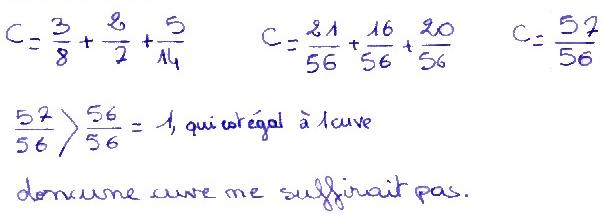 C = 3/8 + 2/7 + 5/14   C = 21/56 + 16/56 + 20/56   C = 57/56
57/56 > 56/56 = 1, qui est égal à 1 cuve
donc une cuve ne suffirait pas.